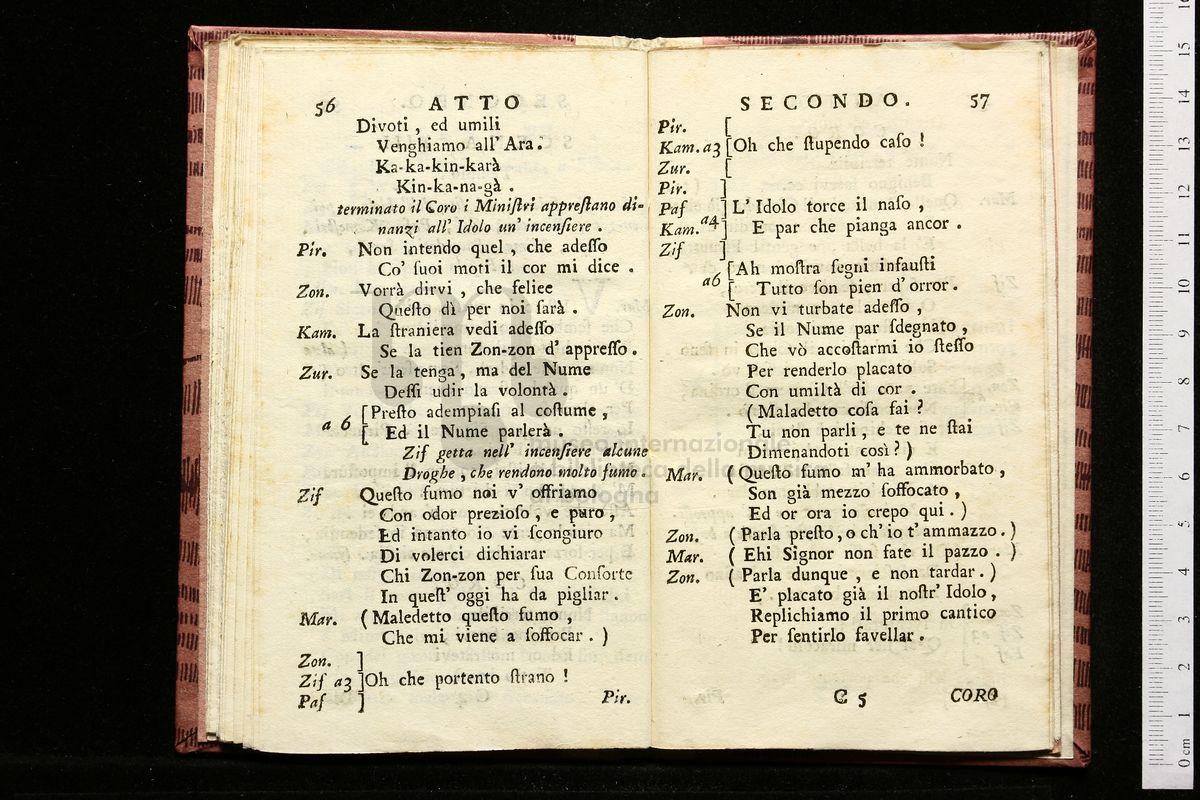 56 ATTO
Divoti , ed umili
Venghiamo all' Ara.
Ka-ka-kin-karà
Kin-ka-na-gà .
terminato il Coro i Miniſtri appreſtano di-
nanzi all' Idolo un' incenſiere .
Pir. Non intendo quel , che adeſſo
Co' ſuoi moti il cor mi dice .
Zon. Vorrà dirvi , che felice
Queſto dì per noi ſarà .
Kam. La ſtraniera vedi adeſſo
Se la tien Zon-zon d' appreſſo .
Zur. Se la tenga , ma del Nume
Deſſi udir la volontà .
a 6 [Preſto adempiaſi al coſtume ,
[ Ed il Nume parlerà .
Zif getta nell' incenſiere alcune
Droghe , che rendono molto fumo .
Zif Queſto fumo noi v' offriamo
Con odor prezioſo , e puro ,
Ed intanto io vi ſcongiuro
Di volerci dichiarar
Chi Zon-zon per ſua Conſorte
In queſt' oggi ha da pigliar .
Mar. ( Maledetto queſto fumo ,
Che mi viene a ſoffocar . )
Zon. ]
Zif a3 ]Oh che portento ſtrano !
Paſ ]
Pir.
SECONDO. 57
Pir. [
Kam. a3 [Oh che ſtupendo caſo !
Zur. [
Pir. ]
Paſ ] L' Idolo torce il naſo ,
Kam. a4 ] E par che pianga ancor .
Zif ]
a6 [Ah moſtra ſegni infauſti
[ Tutto ſon pien d' orror .
Zon. Non vi turbate adeſſo ,
Se il Nume par ſdegnato ,
Che vò accoſtarmi io ſteſſo
Per renderlo placato
Con umiltà di cor .
( Maladetto coſa fai ?
Tu non parli , e te ne ſtai
Dimenandoti così ? )
Mar. ( Queſto fumo m' ha ammorbato ,
Son già mezzo ſoffocato ,
Ed or ora io crepo qui . )
Zon. ( Parla preſto , o ch' io t' ammazzo . )
Mar. ( Ehi Signor non fate il pazzo . )
Zon. ( Parla dunque , e non tardar . )
E' placato già il noſtr' Idolo ,
Replichiamo il primo cantico
Per ſentirlo favellar .
C 5 CORO
museo internazionale
e biblioteca della musica
di bologna
0 cm 1 2 3 4 5 6 7 8 9 10 11 12 13 14 15 16